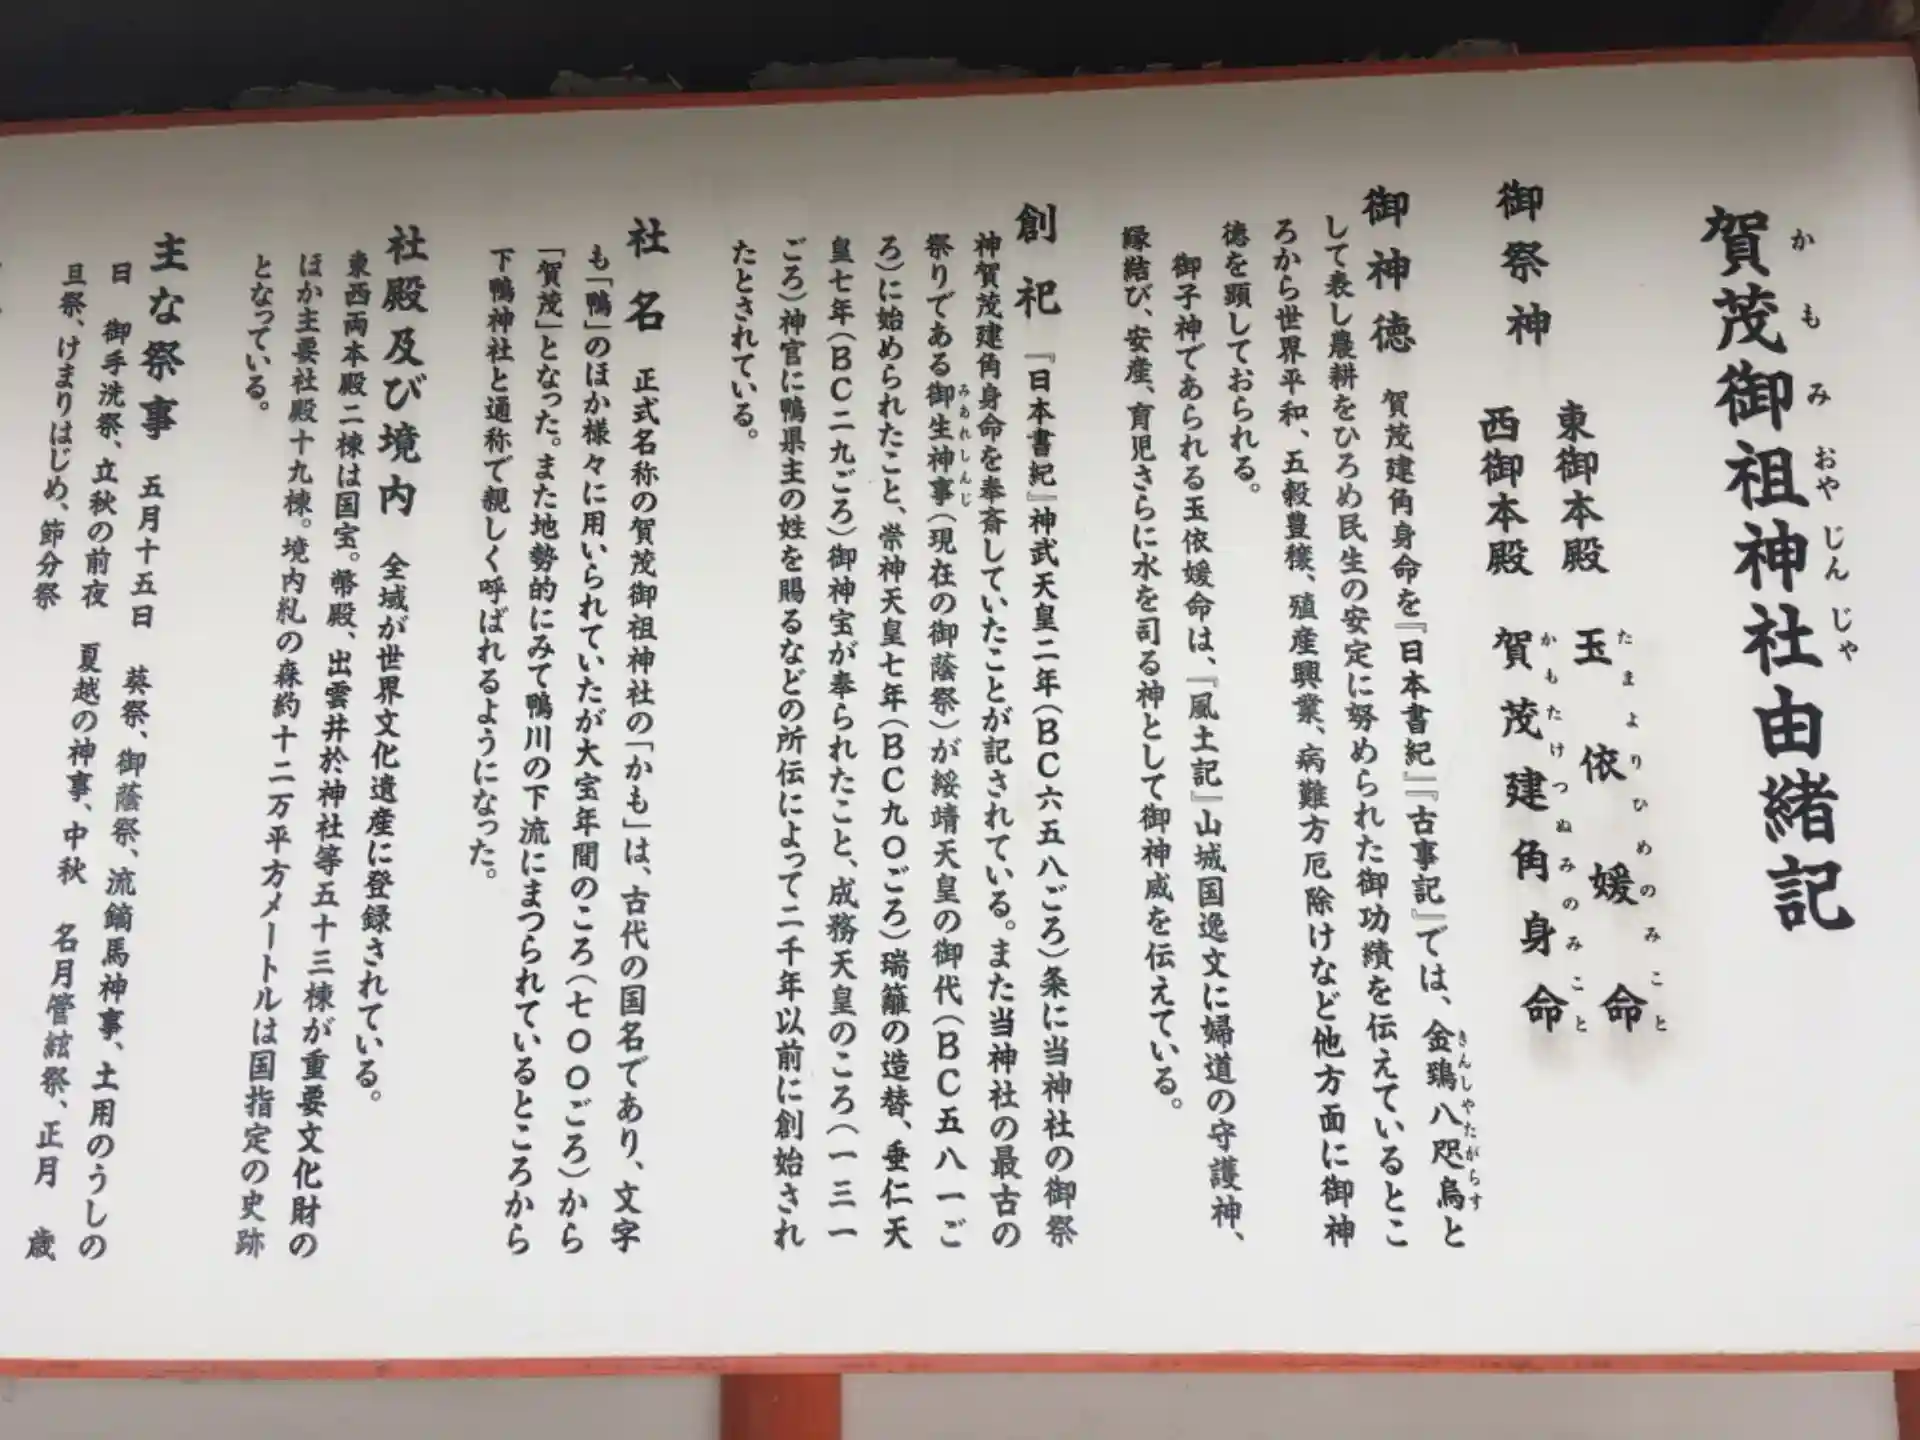 賀茂御祖神社由緒記
かもみおやじんじゃ
御祭神
東御本殿 玉依媛命
たまよりひめのみこと
西御本殿 賀茂建角身命
かもたけつぬみのみこと
御神徳 賀茂建角身命を『日本書紀』『古事記』では、金鵄八咫烏と
きんしやたがらす
して表し農耕をひろめ民生の安定に努められた御功績を伝えているとこ
ろから世界平和、五穀豊穣、殖産興業、病難方厄除けなど他方面に御神
徳を顕しておられる。
御子神であられる玉依媛命は、『風土記』山城国逸文に婦道の守護神、
縁結び、安産、育児さらに水を司る神として御神威を伝えている。
創祀 『日本書紀』神武天皇二年(BC六五八ごろ)条に当神社の御祭
神賀茂建角身命を奉斎していたことが記されている。また当神社の最古の
祭りである御生神事(現在の御蔭祭)が綏靖天皇の御代(BC五八一ご
みあれしんじ
ろ)に始められたこと、崇神天皇七年(BC九〇ごろ)瑞籬の造替、垂仁天
皇七年(BC二九ごろ)御神宝が奉られたこと、成務天皇のころ(一三一
ごろ)神官に鴨県主の姓を賜るなどの所伝によって二千年以前に創始され
たとされている。
社名 正式名称の賀茂御祖神社の「かも」は、古代の国名であり、文字
も「鴨」のほか様々に用いられていたが大宝年間のころ(七〇〇ごろ)から
「賀茂」となった。また地勢的にみて鴨川の下流にまつられているところから
下鴨神社と通称で親しく呼ばれるようになった。
社殿及び境内 全域が世界文化遺産に登録されている。
東西両本殿二棟は国宝。幣殿、出雲井於神社等五十三棟が重要文化財の
ほか主要社殿十九棟。境内糺の森約十二万平方メートルは国指定の史跡
となっている。
主な祭事 五月十五日 葵祭、御蔭祭、流鏑馬神事、土用のうしの
日 御手洗祭、立秋の前夜 夏越の神事、中秋 名月管絃祭、正月 歳
旦祭、けまりはじめ、節分祭